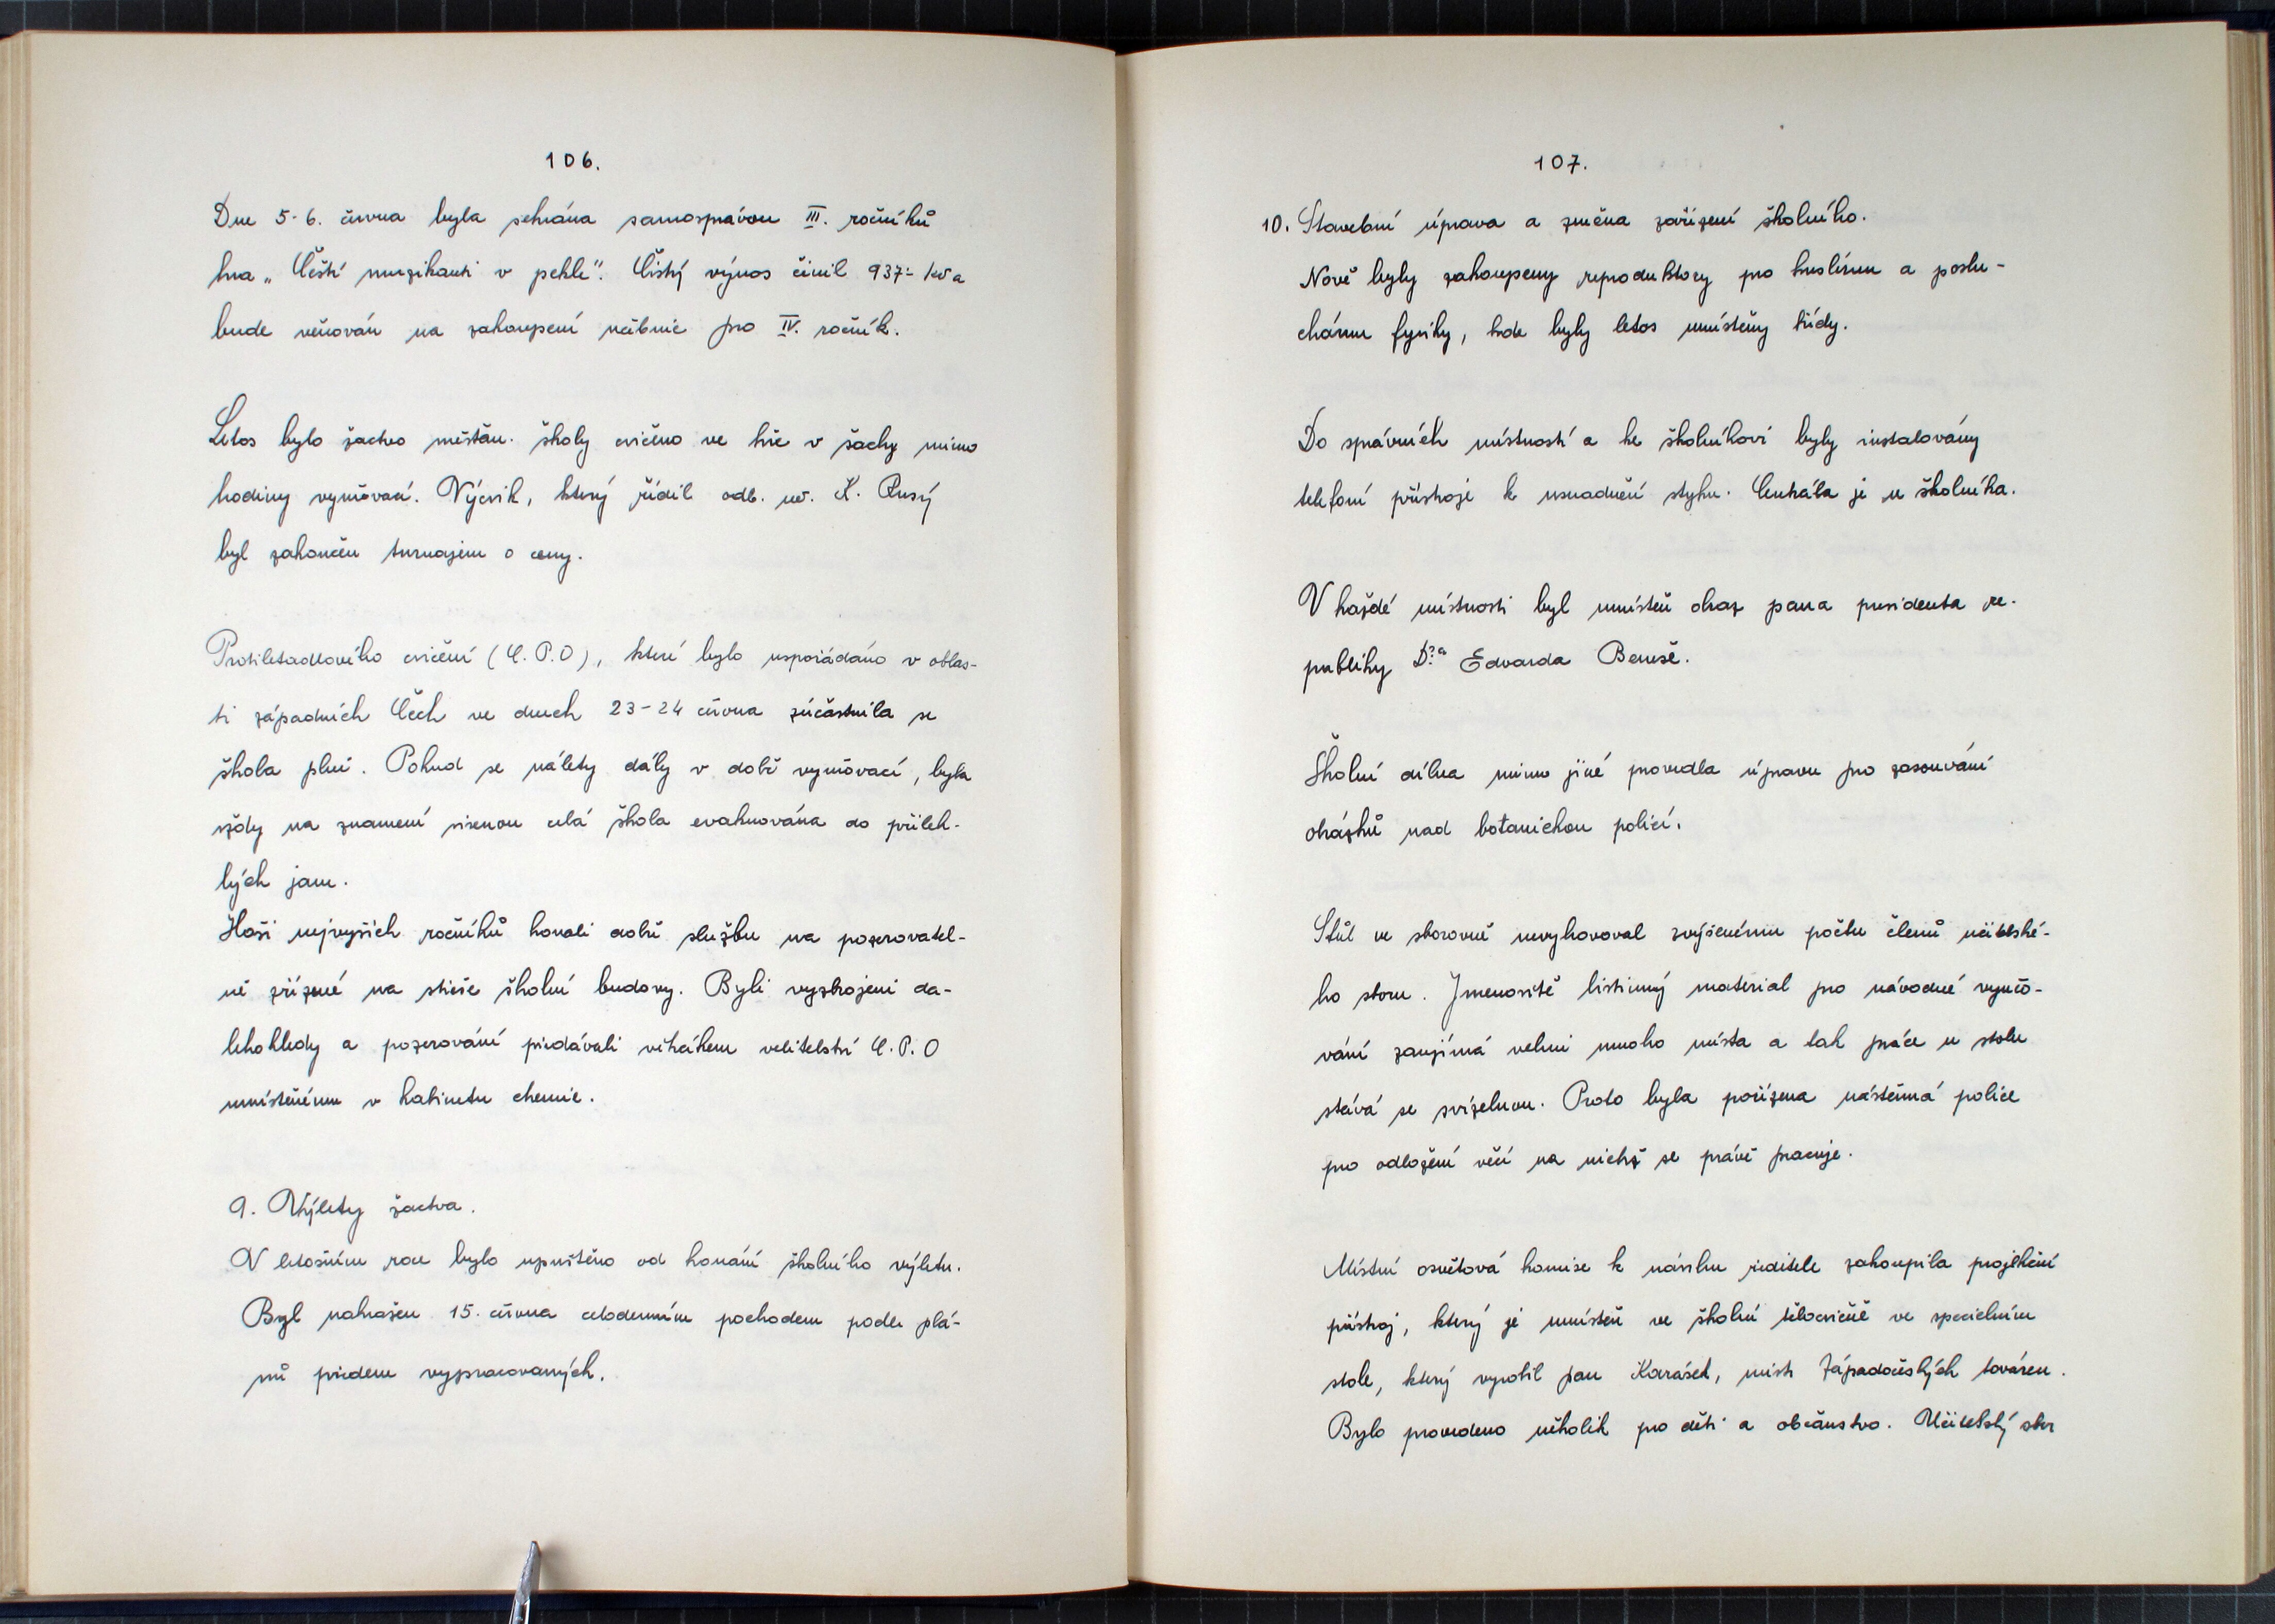 106.
Dne 5-6. června byla sehrána samosprávou III. ročníků
hra „Čeští muzikanti v pekle". Čistý výnos činil 937·- Kč a
bude věnován na zakoupení učebnic pro IV. ročník.
Letos bylo žactvo měšťan. školy cvičeno ve hře v šachy mimo
hodiny vyučovací. Výcvik, který řídil odb. uč. K. Rusý
byl zakončen turnajem o ceny.
Protiletadlového cvičení (C.P.O), které bylo uspořádáno v oblas-
ti západních Čech ve dnech 23-24 června zúčastnila se
škola plně. Pokud se nálety dály v době vyučovací, byla
vždy na znamení sirenou celá škola evakuována do přileh-
lých jam.
Hoši nejvyšších ročníků konali dobře službu na pozorovatel-
ně zřízené na střeše školní budovy. Byli vyzbrojeni da-
lekohledy a pozorování předávali vrhčíkem velitelství C.P.O
umístěnému v kabinetu chemie.
9. Výlety žactva.
V letošním roce bylo upuštěno od konání školního výletu.
Byl nahražen 15. června celodenním pochodem podle plá-
nů předem vypracovaných.
107.
10. Stavební úprava a změna zařízení školního.
Nově byly zakoupeny reproduktory pro kreslírnu a poslu-
chárnu fysiky, kde byly letos umístěny třídy.
Do správních místností a ke školníkovi byly instalovány
telefoní přístroje k usnadnění styku. Centrála je u školníka.
V každé místnosti byl umístěn obraz pana presidenta re-
publiky Dra Edvarda Beneše.
Školní dílna mimo jiné provedla úpravu pro zasouvání
obrázků nad botanickou policí.
Stůl ve sborovně nevyhovoval zvýšenému počtu členů učitelské-
ho sboru. Jmenovitě listinný material pro návodné vyučo-
vání zaujímá velmi mnoho místa a tak práce u stolu
stává se svízelnou. Proto byla pořízena nástěnná police
pro odložení věcí na nichž se právě pracuje.
Místní osvětová komise k návrhu ředitele zakoupila projekční
přístroj, který je umístěn ve školní tělocvičně ve specielním
stole, který vyrobil pan Karásek, mistr Západočeských továren.
Bylo provedeno několik pro děti a občanstvo. Učitelský sbor